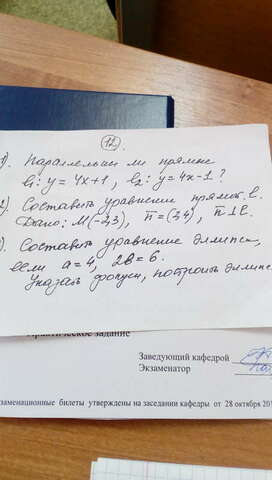 12.
1). Параллельны ли прямые
l₁: y = 4x+1, l₂: y = 4x-1?
2). Составить уравнение прямой l.
Дано: M(-2,3), n̅=(3,4), n̅⊥l.
3). Составить уравнение эллипса,
если a=4, 2b=6.
Указать фокусы, построить эллипс.
Практическое задание
Заведующий кафедрой
Экзаменатор
заменационные билеты утверждены на заседании кафедры от 28 октября 201